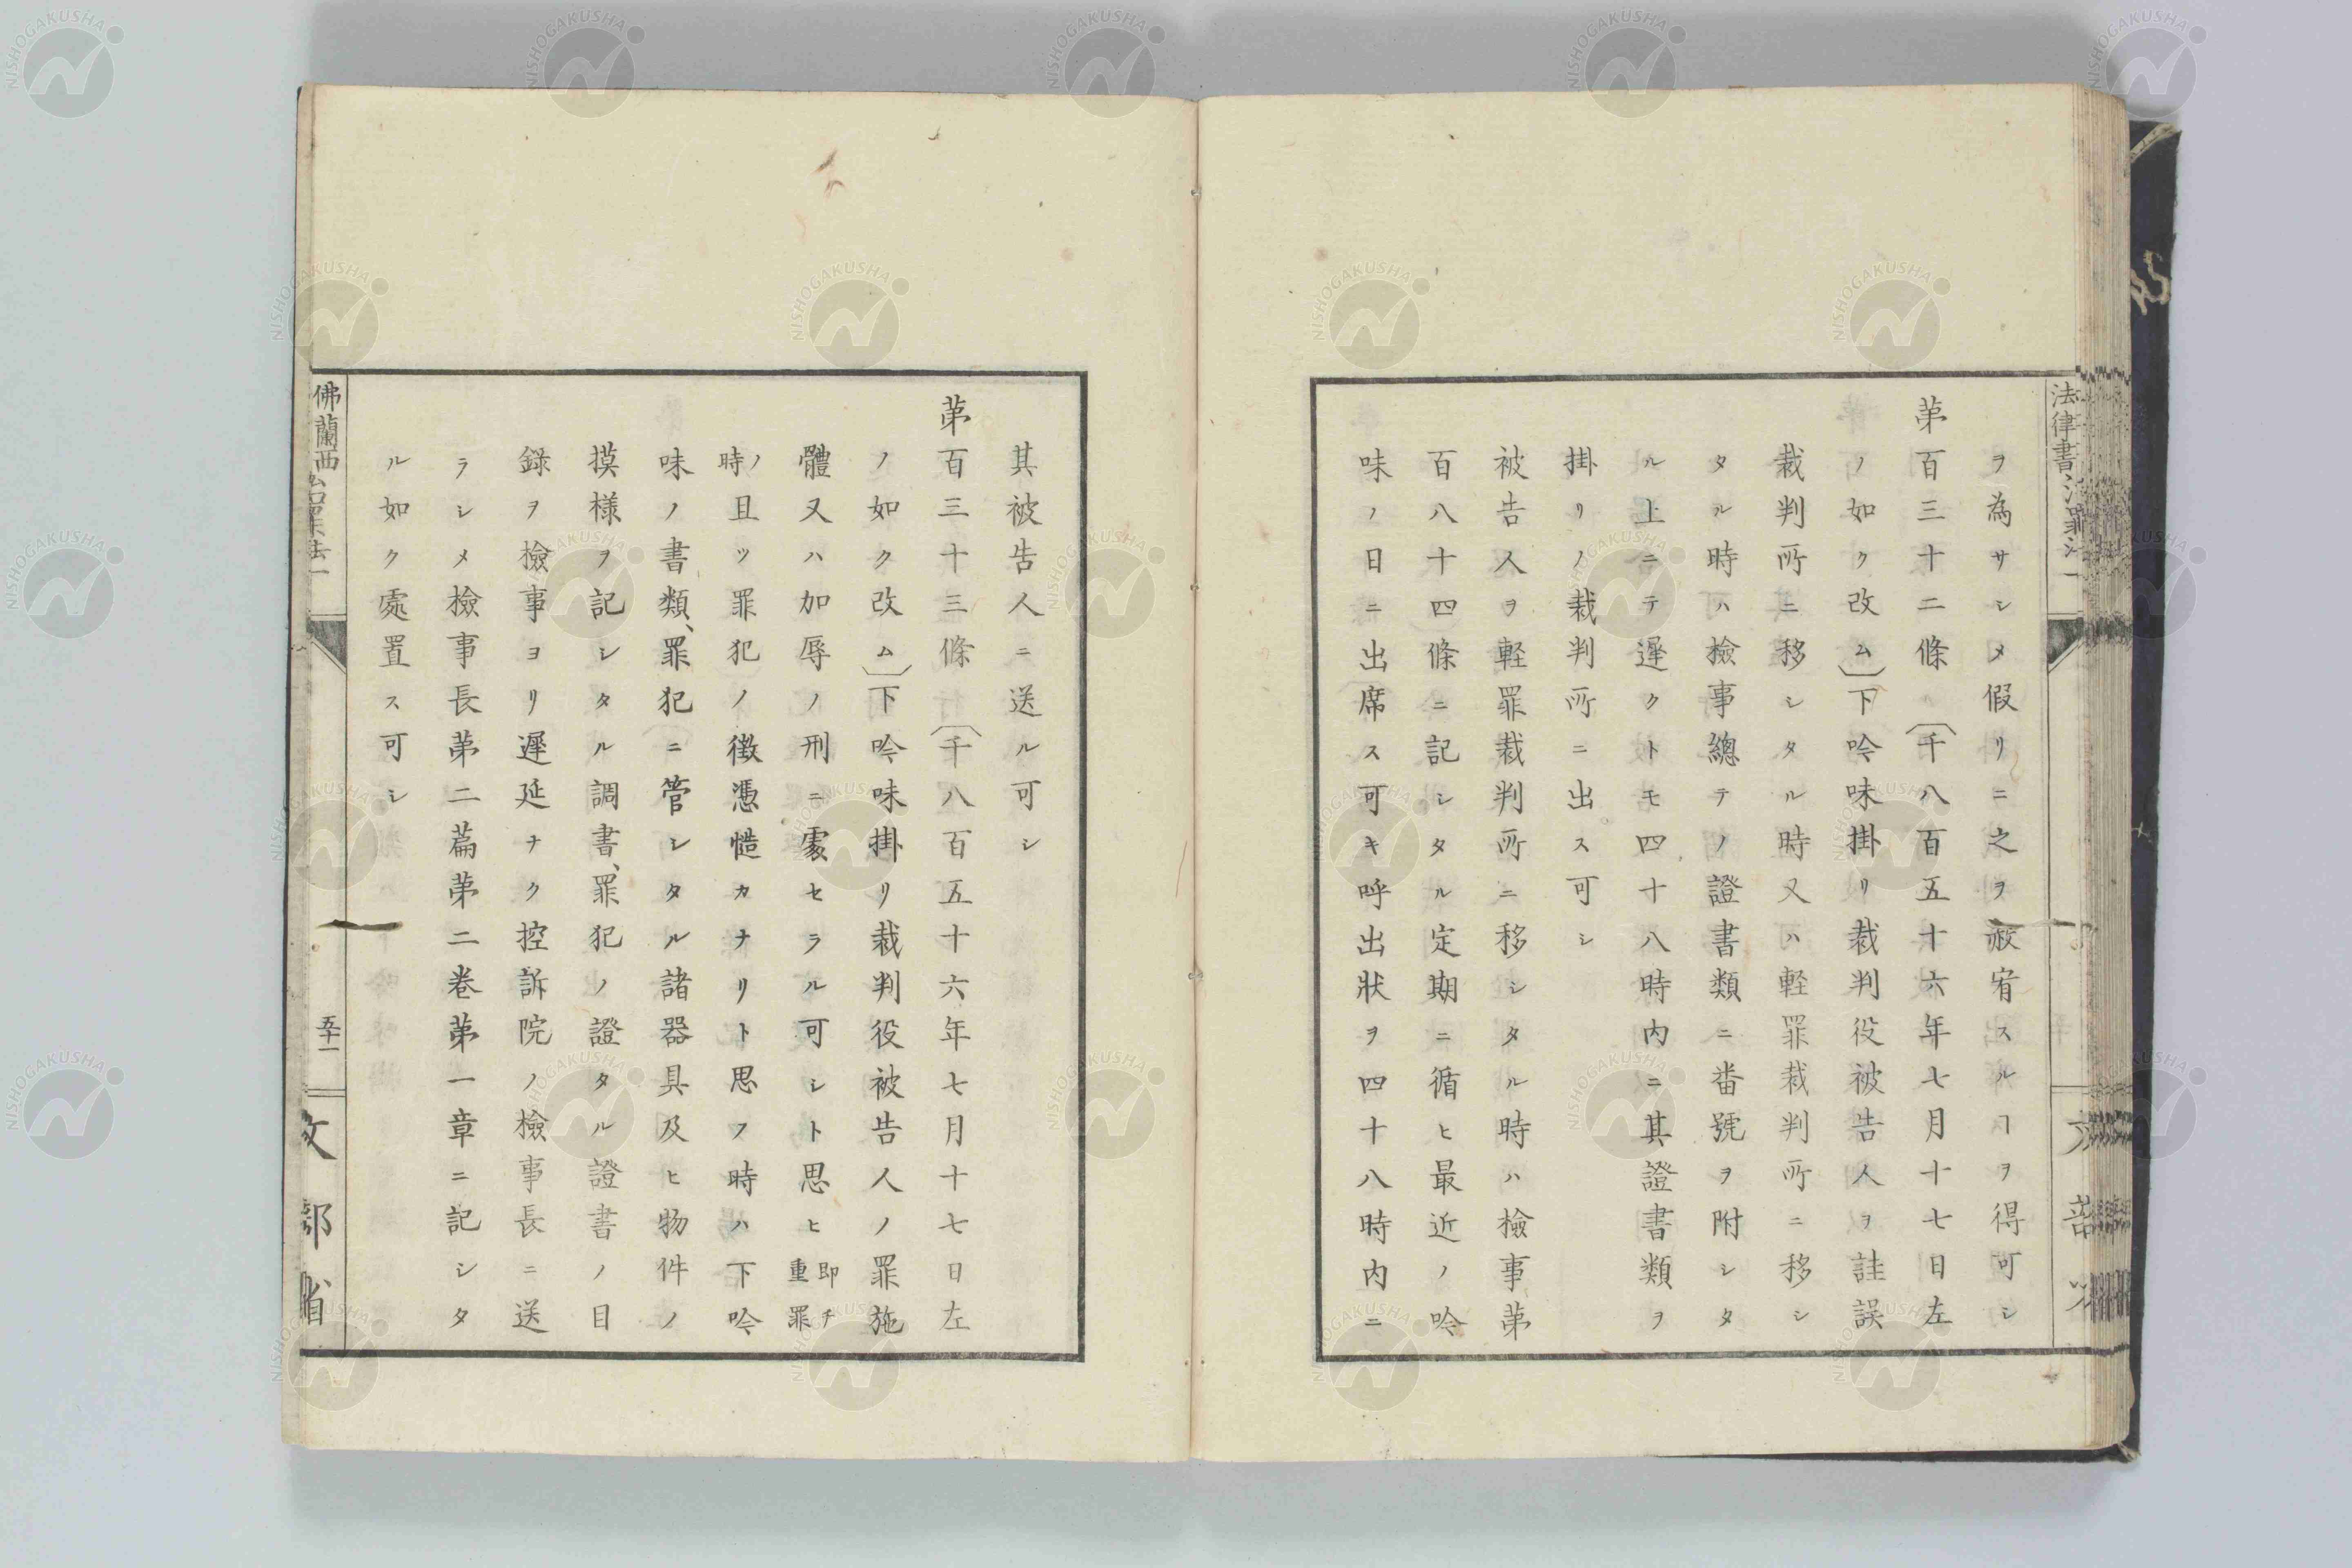 ヲ為サシメ假リニ之ヲ赦宥スルヿヲ得可シ
第百三十二條〔千八百五十六年七月十七日左
ノ如ク改ム〕下吟味掛リ裁判役被告人ヲ詿誤
裁判所ニ移シタル時又ハ軽罪裁判所ニ移シ
タル時ハ檢事總テノ證書類ニ番號ヲ附シタ
ル上ニテ遲クトモ四十八時内ニ其證書類ヲ
掛リノ裁判所ニ出ス可シ
被告人ヲ軽罪裁判所ニ移シタル時ハ檢事第
百八十四條ニ記シタル定期ニ循ヒ最近ノ吟
味ノ日ニ出席ス可キ呼出狀ヲ四十八時内ニ
其被告人ニ送ル可シ
第百三十三條〔千八百五十六年七月十七日左
ノ如ク改ム〕下吟味掛リ裁判役被告人ノ罪施
體又ハ加辱ノ刑ニ處セラル可シト思ヒ即チ重罪
ノ時且ツ罪犯ノ徴憑慥カナリト思フ時ハ下吟
味ノ書類、罪犯ニ管シタル諸器具及ヒ物件ノ
摸様ヲ記シタル調書、罪犯ノ證タル證書ノ目
録ヲ檢事ヨリ遲延ナク控訴院ノ檢事長ニ送
ラシメ檢事長第二篇第二巻第一章ニ記シタ
ル如ク處置ス可シ
佛蘭西
五十一
文部省
法律書
NISHOGAKUSHA